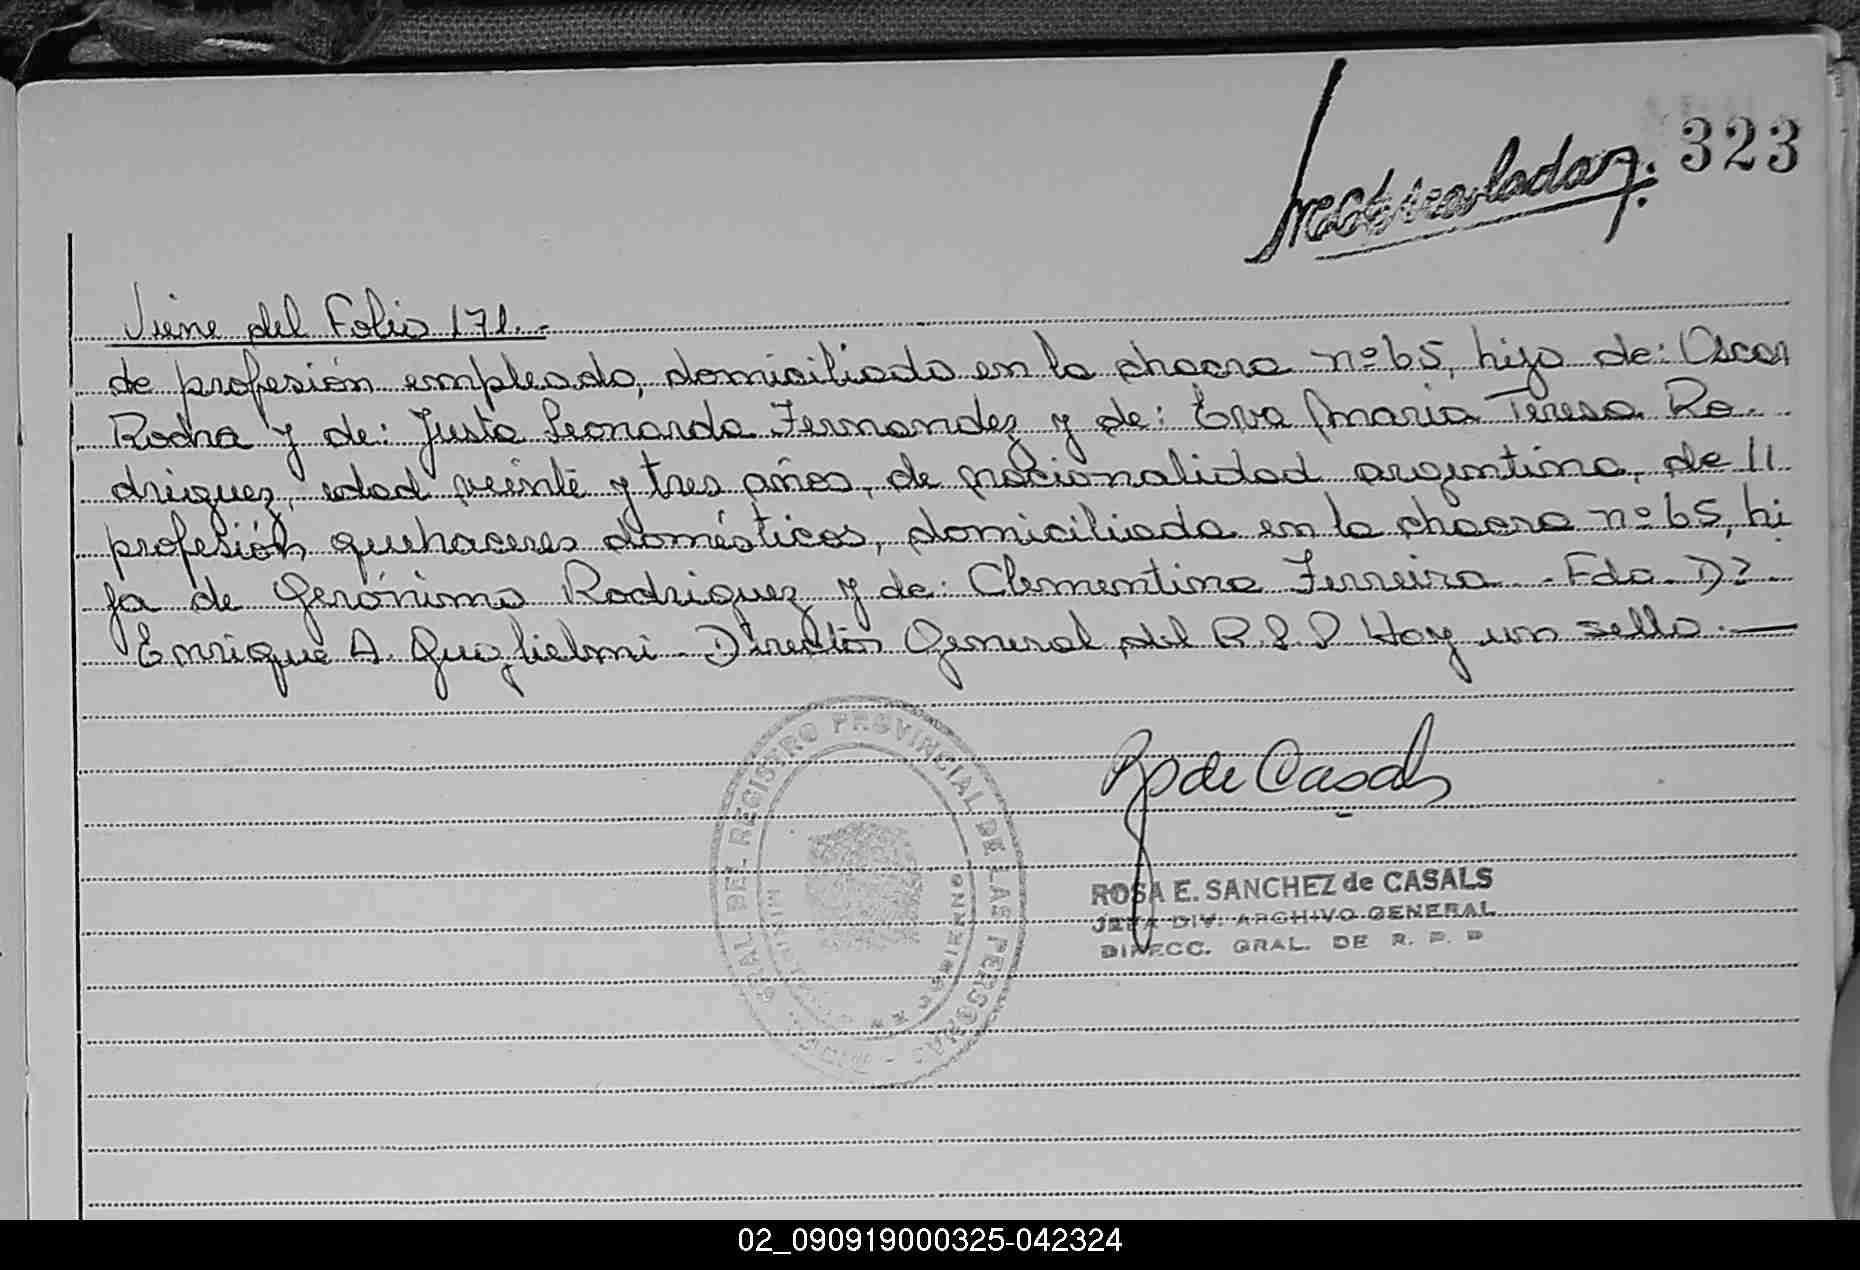 323
Viene del Folio 171.-
de profesión empleado, domiciliado en la chacra nº 65, hijo de: Oscar
Rocha y de: Justa Leonarda Fernandez y de: Eva Maria Teresa Ro-
driguez, edad veinte y tres años, de nacionalidad argentina, de 11
profesión quehaceres domésticos, domiciliada en la chacra nº 65, hi
ja de Gerónimo Rodriguez y de: Clementina Ferreira - Fdo. Dº
Enrique A. Guglielmi - Director General del R.P.P Hay un sello. —
GRAL DEL REGISTRO PROVINCIAL DE LAS PERSONAS
R de Casals
ROSA E. SANCHEZ de CASALS
JEFA DIV. ARCHIVO GENERAL
DIRECC. GRAL. DE R. P. P
02_090919000325-042324